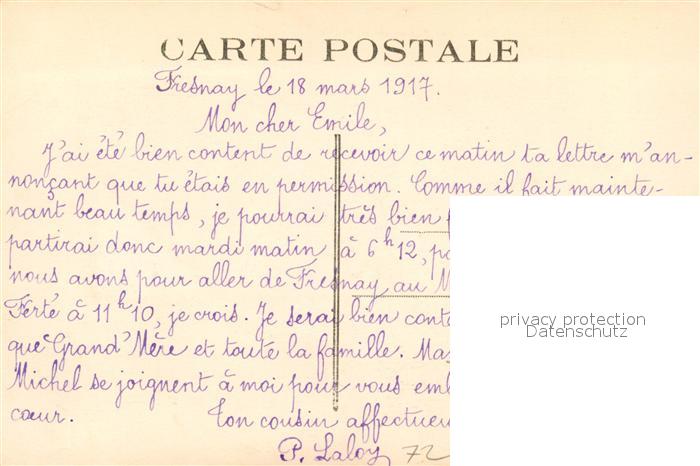 CARTE POSTALE
Fresnay le 18 mars 1917.
Mon cher Emile,
J'ai été bien content de recevoir ce matin ta lettre m'an-
nonçant que tu étais en permission. Comme il fait mainte-
nant beau temps, je pourrai très bien
partirai donc mardi matin à 6h12,
nous avons pour aller de Fresnay au
Ferté à 11h10, je crois. Je serai bien
que Grand'Mère et toute la famille.
Michel se joignent à moi pour vous
cœur. Ton cousin
P. Laloy 72
privacy protection
Datenschutz